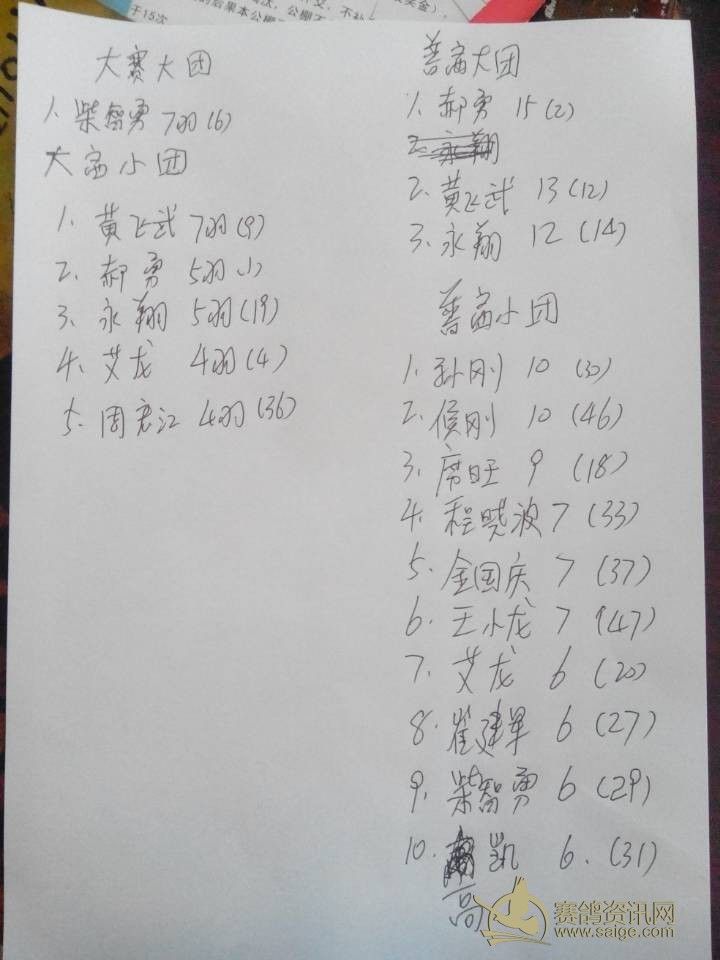 于15次
大赛大团
1. 柴智勇 7羽(6)
大富小团
1. 黄飞武 7羽(9)
2. 郝勇 5羽(1)
3. 永翔 5羽(19)
4. 艾龙 4羽(4)
5. 周君江 4羽(36)
普富大团
1. 郝勇 15(2)
2. 永翔
2. 黄飞武 13(12)
3. 永翔 12(14)
普富小团
1. 孙刚 10 (30)
2. 侯刚 10 (46)
3. 席旺 9 (18)
4. 程晓波 7 (33)
5. 金国庆 7 (37)
6. 王小龙 7 (47)
7. 艾龙 6 (20)
8. 崔建军 6 (27)
9. 柴智勇 6 (29)
10. 凯 6. (31)
高
赛鸽资讯网
www.saige.com